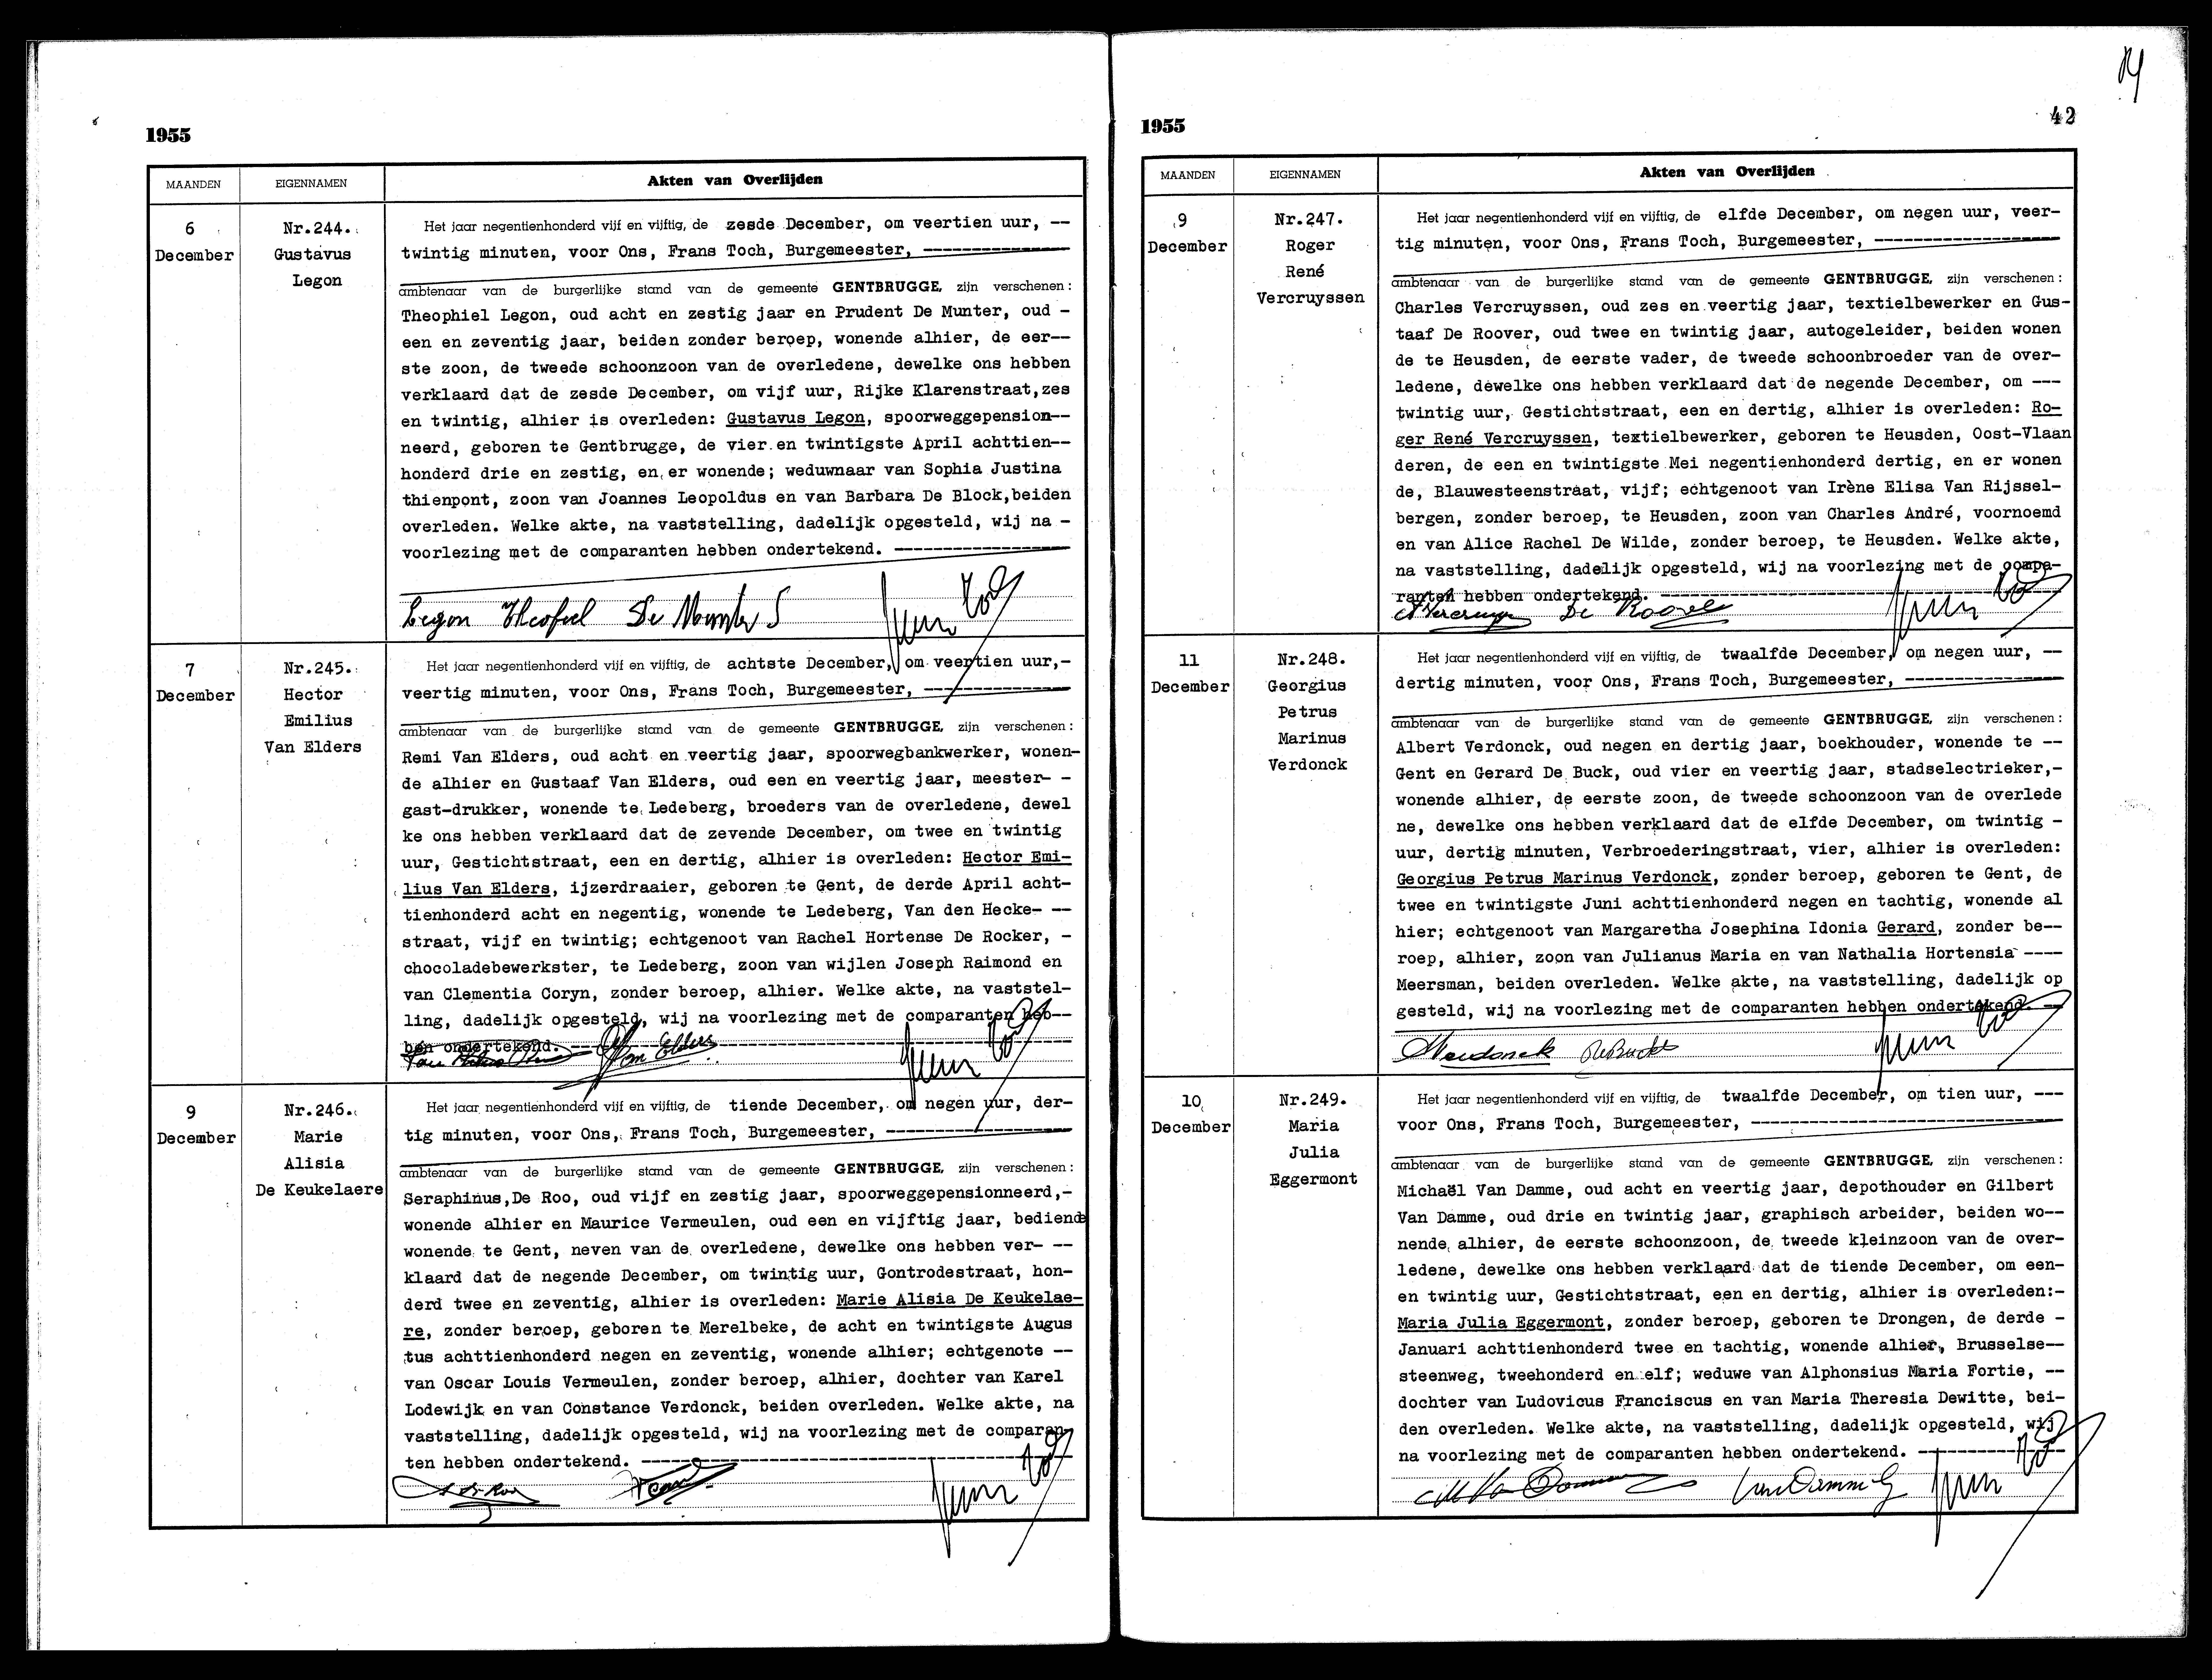 1955
MAANDEN EIGENNAMEN Akten van Overlijden
6
December
Nr.244.
Gustavus
Legon
Het jaar negentienhonderd vijf en vijftig, de zesde December, om veertien uur, --
twintig minuten, voor Ons, Frans Toch, Burgemeester, ----------------
ambtenaar van de burgerlijke stand van de gemeente GENTBRUGGE, zijn verschenen:
Theophiel Legon, oud acht en zestig jaar en Prudent De Munter, oud -
een en zeventig jaar, beiden zonder beroep, wonende alhier, de eer--
ste zoon, de tweede schoonzoon van de overledene, dewelke ons hebben
verklaard dat de zesde December, om vijf uur, Rijke Klarenstraat,zes
en twintig, alhier is overleden: Gustavus Legon, spoorweggepension--
neerd, geboren te Gentbrugge, de vier en twintigste April achttien--
honderd drie en zestig, en er wonende; weduwnaar van Sophia Justina
thienpont, zoon van Joannes Leopoldus en van Barbara De Block,beiden
overleden. Welke akte, na vaststelling, dadelijk opgesteld, wij na -
voorlezing met de comparanten hebben ondertekend. -------------------
Legon Theofiel De Munter
7
December
Nr.245.
Hector
Emilius
Van Elders
Het jaar negentienhonderd vijf en vijftig, de achtste December, om veertien uur,-
veertig minuten, voor Ons, Frans Toch, Burgemeester, ----------------
ambtenaar van de burgerlijke stand van de gemeente GENTBRUGGE, zijn verschenen:
Remi Van Elders, oud acht en veertig jaar, spoorwegbankwerker, wonen-
de alhier en Gustaaf Van Elders, oud een en veertig jaar, meester- -
gast-drukker, wonende te Ledeberg, broeders van de overledene, dewel
ke ons hebben verklaard dat de zevende December, om twee en twintig
uur, Gestichtstraat, een en dertig, alhier is overleden: Hector Emi-
lius Van Elders, ijzerdraaier, geboren te Gent, de derde April acht-
tienhonderd acht en negentig, wonende te Ledeberg, Van den Hecke- --
straat, vijf en twintig; echtgenoot van Rachel Hortense De Rocker, -
chocoladebewerkster, te Ledeberg, zoon van wijlen Joseph Raimond en
van Clementia Coryn, zonder beroep, alhier. Welke akte, na vaststel-
ling, dadelijk opgesteld, wij na voorlezing met de comparanten heb--
ben ondertekend. ----------------
Van Elders
9
December
Nr.246.
Marie
Alisia
De Keukelaere
Het jaar negentienhonderd vijf en vijftig, de tiende December, om negen uur, der-
tig minuten, voor Ons, Frans Toch, Burgemeester, --------------------
ambtenaar van de burgerlijke stand van de gemeente GENTBRUGGE, zijn verschenen:
Seraphinus,De Roo, oud vijf en zestig jaar, spoorweggepensionneerd,-
wonende alhier en Maurice Vermeulen, oud een en vijftig jaar, bediende
wonende te Gent, neven van de overledene, dewelke ons hebben ver- --
klaard dat de negende December, om twintig uur, Gontrodestraat, hon-
derd twee en zeventig, alhier is overleden: Marie Alisia De Keukelae-
re, zonder beroep, geboren te Merelbeke, de acht en twintigste Augus
tus achttienhonderd negen en zeventig, wonende alhier; echtgenote --
van Oscar Louis Vermeulen, zonder beroep, alhier, dochter van Karel
Lodewijk en van Constance Verdonck, beiden overleden. Welke akte, na
vaststelling, dadelijk opgesteld, wij na voorlezing met de comparan-
ten hebben ondertekend. ----------------
1955
42
MAANDEN EIGENNAMEN Akten van Overlijden
9
December
Nr.247.
Roger
René
Vercruyssen
Het jaar negentienhonderd vijf en vijftig, de elfde December, om negen uur, veer-
tig minuten, voor Ons, Frans Toch, Burgemeester, --------------------
ambtenaar van de burgerlijke stand van de gemeente GENTBRUGGE, zijn verschenen:
Charles Vercruyssen, oud zes en veertig jaar, textielbewerker en Gus-
taaf De Roover, oud twee en twintig jaar, autogeleider, beiden wonen
de te Heusden, de eerste vader, de tweede schoonbroeder van de over-
ledene, dewelke ons hebben verklaard dat de negende December, om ---
twintig uur, Gestichtstraat, een en dertig, alhier is overleden: Ro-
ger René Vercruyssen, textielbewerker, geboren te Heusden, Oost-Vlaan
deren, de een en twintigste Mei negentienhonderd dertig, en er wonen
de, Blauwesteenstraat, vijf; echtgenoot van Irène Elisa Van Rijssel-
bergen, zonder beroep, te Heusden, zoon van Charles André, voornoemd
en van Alice Rachel De Wilde, zonder beroep, te Heusden. Welke akte,
na vaststelling, dadelijk opgesteld, wij na voorlezing met de compa-
ranten hebben ondertekend. ----------------
De Roover
11
December
Nr.248.
Georgius
Petrus
Marinus
Verdonck
Het jaar negentienhonderd vijf en vijftig, de twaalfde December, om negen uur, --
dertig minuten, voor Ons, Frans Toch, Burgemeester, -----------------
ambtenaar van de burgerlijke stand van de gemeente GENTBRUGGE, zijn verschenen:
Albert Verdonck, oud negen en dertig jaar, boekhouder, wonende te --
Gent en Gerard De Buck, oud vier en veertig jaar, stadselectrieker,-
wonende alhier, de eerste zoon, de tweede schoonzoon van de overlede
ne, dewelke ons hebben verklaard dat de elfde December, om twintig -
uur, dertig minuten, Verbroederingstraat, vier, alhier is overleden:
Georgius Petrus Marinus Verdonck, zonder beroep, geboren te Gent, de
twee en twintigste Juni achttienhonderd negen en tachtig, wonende al
hier; echtgenoot van Margaretha Josephina Idonia Gerard, zonder be--
roep, alhier, zoon van Julianus Maria en van Nathalia Hortensia ----
Meersman, beiden overleden. Welke akte, na vaststelling, dadelijk op
gesteld, wij na voorlezing met de comparanten hebben ondertekend. --
10
December
Nr.249.
Maria
Julia
Eggermont
Het jaar negentienhonderd vijf en vijftig, de twaalfde December, om tien uur, ---
voor Ons, Frans Toch, Burgemeester, ----------------
ambtenaar van de burgerlijke stand van de gemeente GENTBRUGGE, zijn verschenen:
Michaël Van Damme, oud acht en veertig jaar, depothouder en Gilbert
Van Damme, oud drie en twintig jaar, graphisch arbeider, beiden wo--
nende alhier, de eerste schoonzoon, de tweede kleinzoon van de over-
ledene, dewelke ons hebben verklaard dat de tiende December, om een-
en twintig uur, Gestichtstraat, een en dertig, alhier is overleden:-
Maria Julia Eggermont, zonder beroep, geboren te Drongen, de derde -
Januari achttienhonderd twee en tachtig, wonende alhier, Brusselse--
steenweg, tweehonderd en elf; weduwe van Alphonsius Maria Fortie, --
dochter van Ludovicus Franciscus en van Maria Theresia Dewitte, bei-
den overleden. Welke akte, na vaststelling, dadelijk opgesteld, wij
na voorlezing met de comparanten hebben ondertekend. ----------------